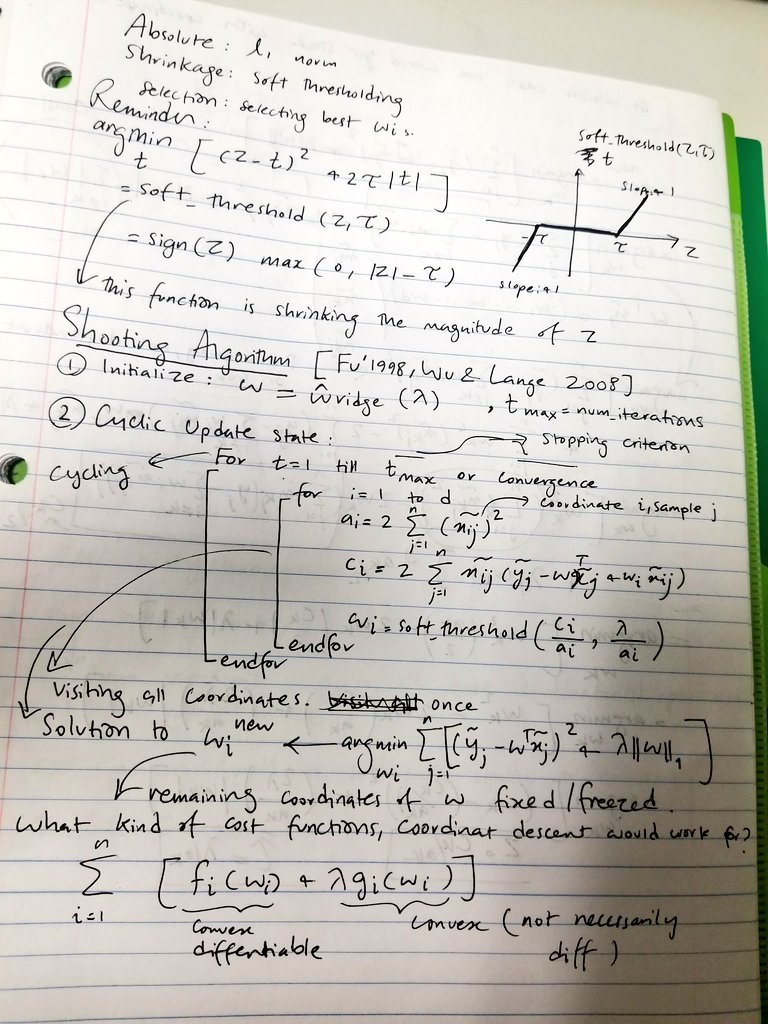 Absolute: l₁ norm
Shrinkage: soft thresholding
selection: selecting best wi s.
Reminder:
argmin t [(z-t)² + 2τ|t|]
= soft_threshold (z, τ)
= sign(z) max(0, |z| - τ)
this function is shrinking the magnitude of z
soft_threshold(z, τ)
t
slope: +1
-τ
τ
z
slope: +1
Shooting Algorithm [Fu'1998, Wu & Lange 2008]
① Initialize: w = ŵridge (λ) , tmax = num_iterations
② Cyclic Update state:
stopping criterion
cycling ← For t=1 till tmax or convergence
for i=1 to d → coordinate i, sample j
ai = 2 Σ_{j=1}^{n} (x̃ij)²
ci = 2 Σ_{j=1}^{n} x̃ij (ỹj - wᵀx̃j + wi x̃ij)
wi = soft_threshold (ci/ai, λ/ai)
endfor
endfor
visiting all coordinates. once
Solution to wi^new ← argmin wi Σ_{j=1}^{n} [(ỹj - wᵀx̃j)² + λ||w||₁]
remaining coordinates of w fixed/freezed.
What kind of cost functions, coordinat descent would work for?
Σ_{i=1}^{n} [fi(wi) + λgi(wi)]
convex convex (not necessarily
diffentiable diff)